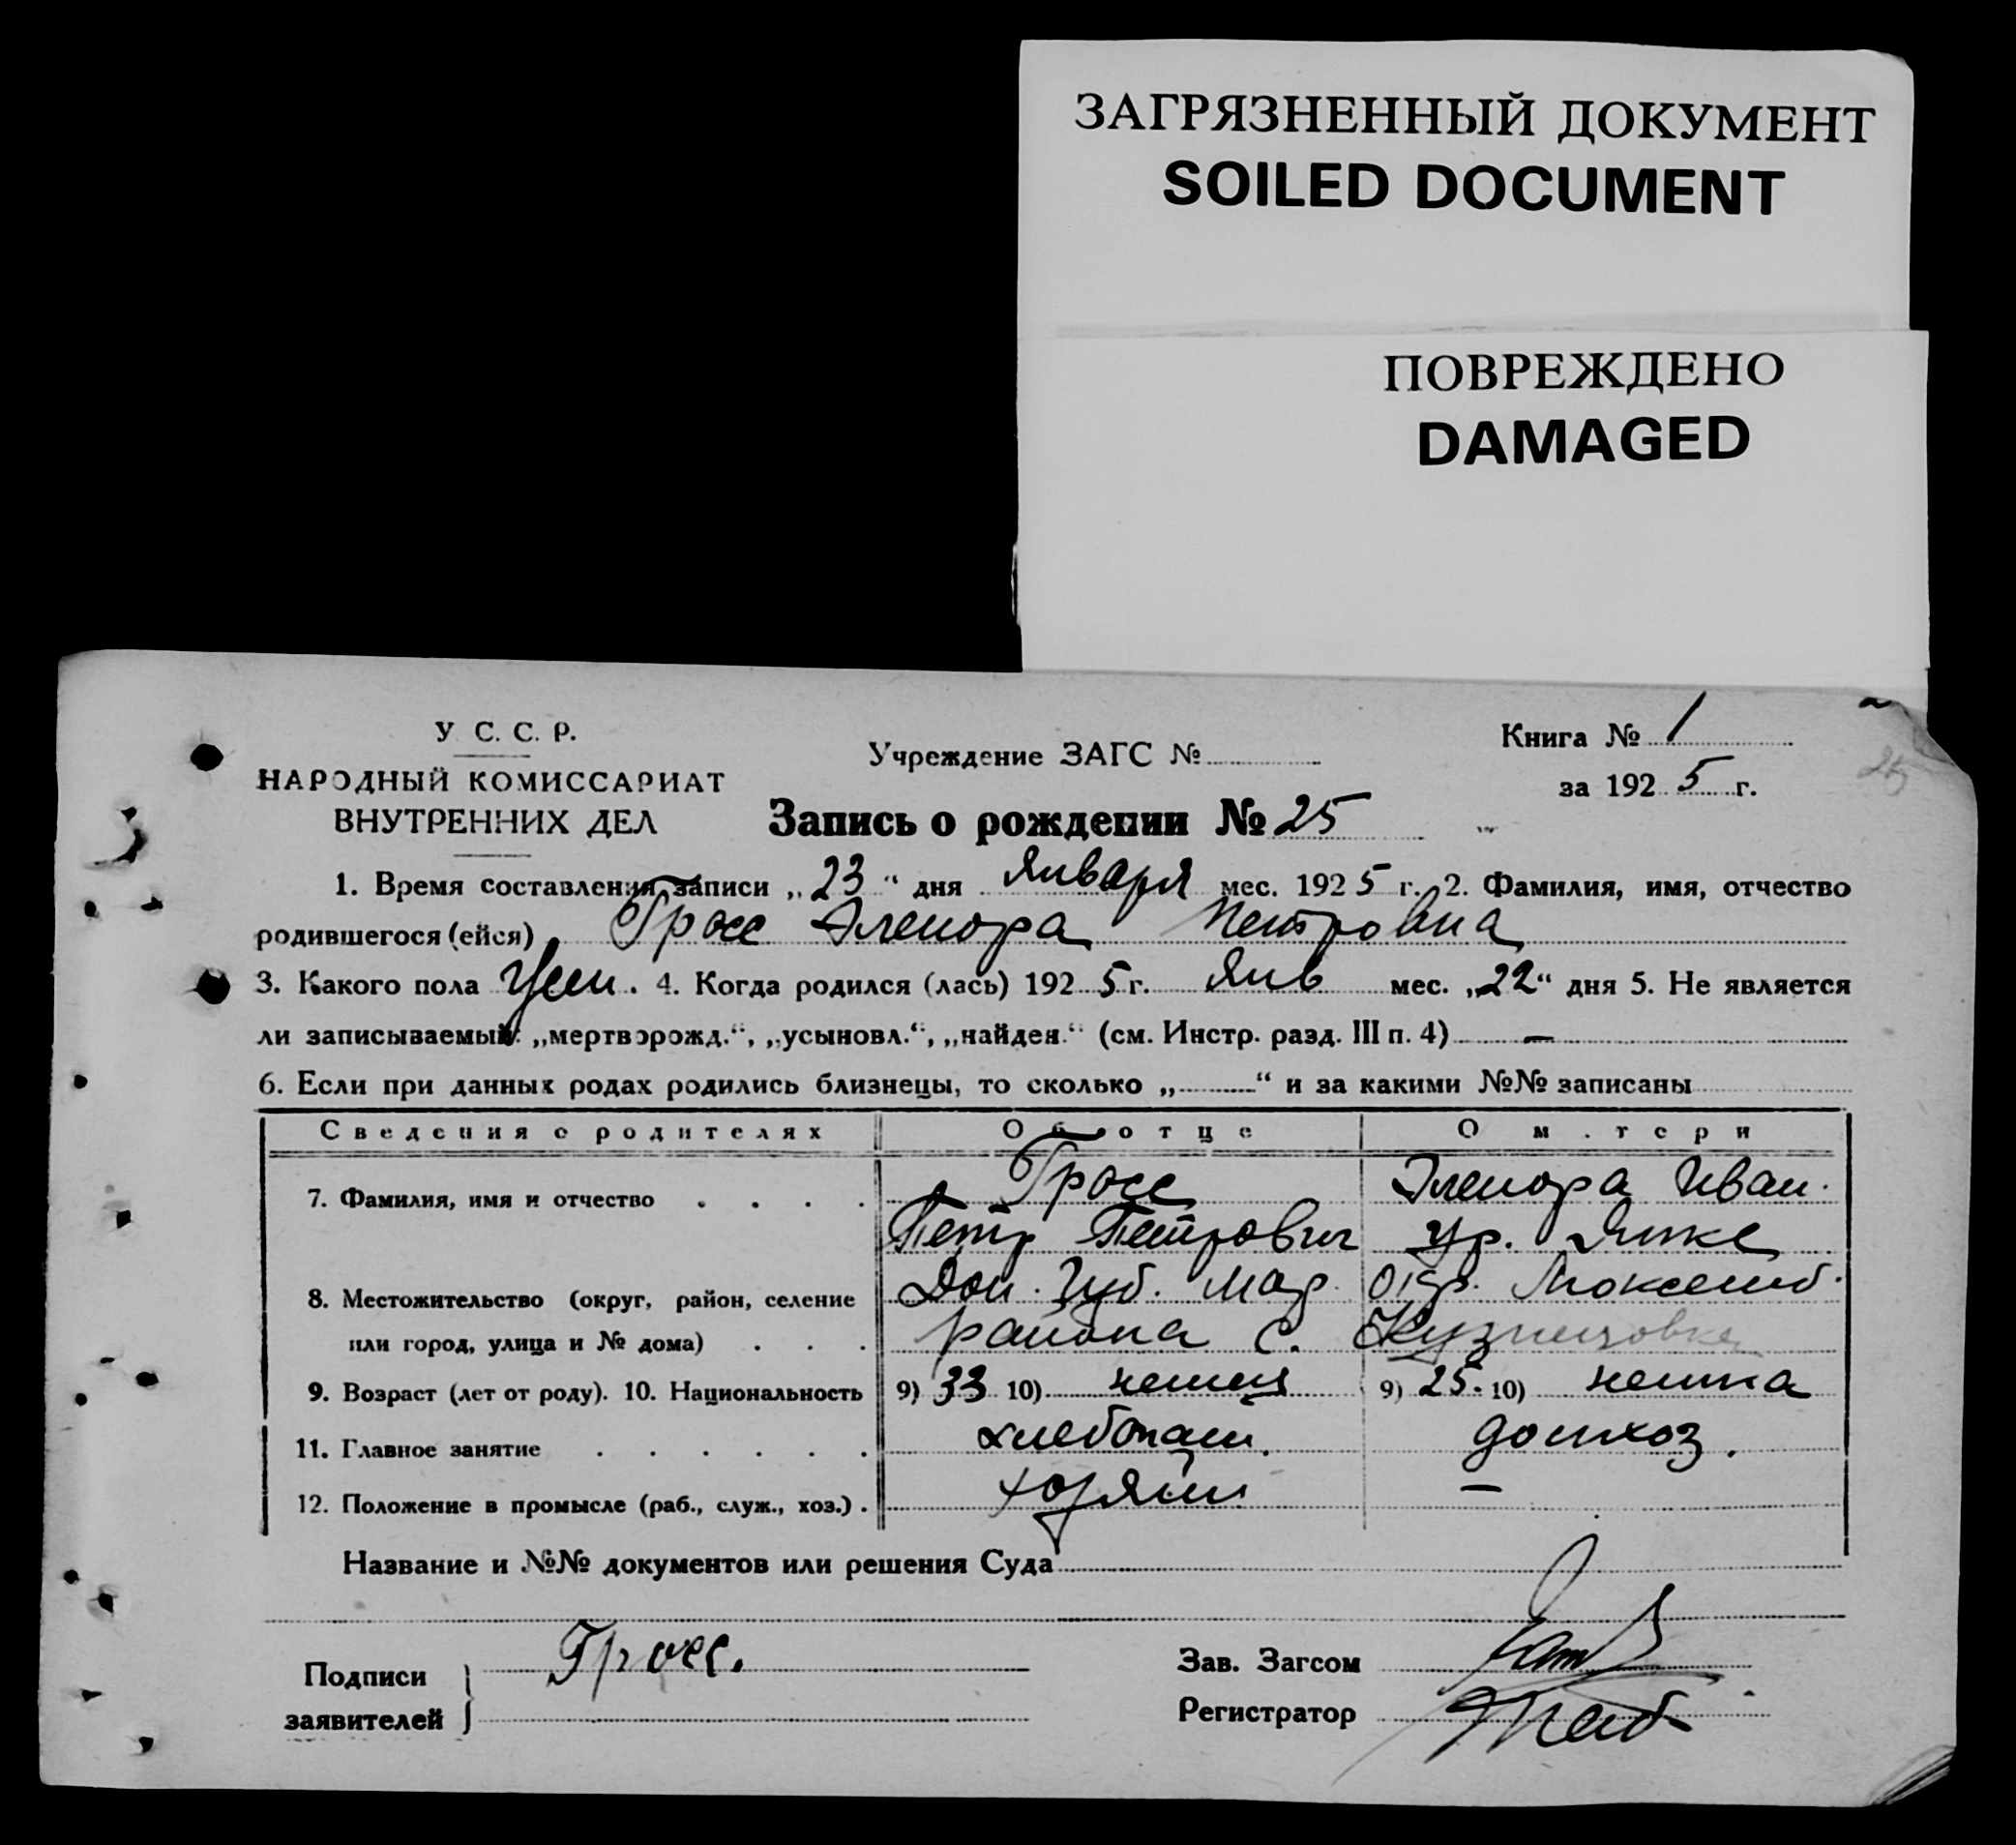 ЗАГРЯЗНЕННЫЙ ДОКУМЕНТ
SOILED DOCUMENT
ПОВРЕЖДЕНО
DAMAGED
У С. С. Р.
НАРОДНЫЙ КОМИССАРИАТ
ВНУТРЕННИХ ДЕЛ
Учреждение ЗАГС №
Книга № 1
за 1925 г.
25
Запись о рождении № 25
1. Время составления записи „23“ дня Января мес. 1925 г. 2. Фамилия, имя, отчество
родившегося (ейся) Гросс Эленора Петровна
3. Какого пола жен. 4. Когда родился (лась) 1925 г. Янв мес. „22“ дня 5. Не является
ли записываемый: „мертворожд.“, „усыновл.“, „найден.“ (см. Инстр. разд. III п. 4) —
6. Если при данных родах родились близнецы, то сколько „ “ и за какими №№ записаны
Сведения о родителях Об отце О матери
7. Фамилия, имя и отчество Гросс Эленора Иван.
Петр Петрович ур. Янке
8. Местожительство (округ, район, селение Дон. Губ. Мар.
или город, улица и № дома) района с. Кузнецовка
9. Возраст (лет от роду). 10. Национальность 9) 33 10) немец 9) 25. 10) немка
11. Главное занятие хлебопаш. домхоз.
12. Положение в промысле (раб., служ., хоз.) хозяин —
Название и №№ документов или решения Суда
Подписи
заявителей
Гросс.
Зав. Загсом
Регистратор